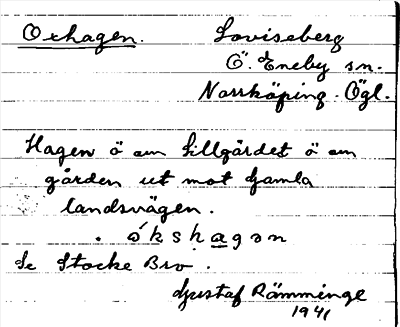 Oxhagen. Loviseberg
Ö. Eneby sn.
Norrköping. Ögl.
Hagen ö om Lillgärdet ö om
gården ut mot Gamla
landsvägen.
. ó̀kshagən
Se Stocke Bro.
Gustaf Rämminge
1941